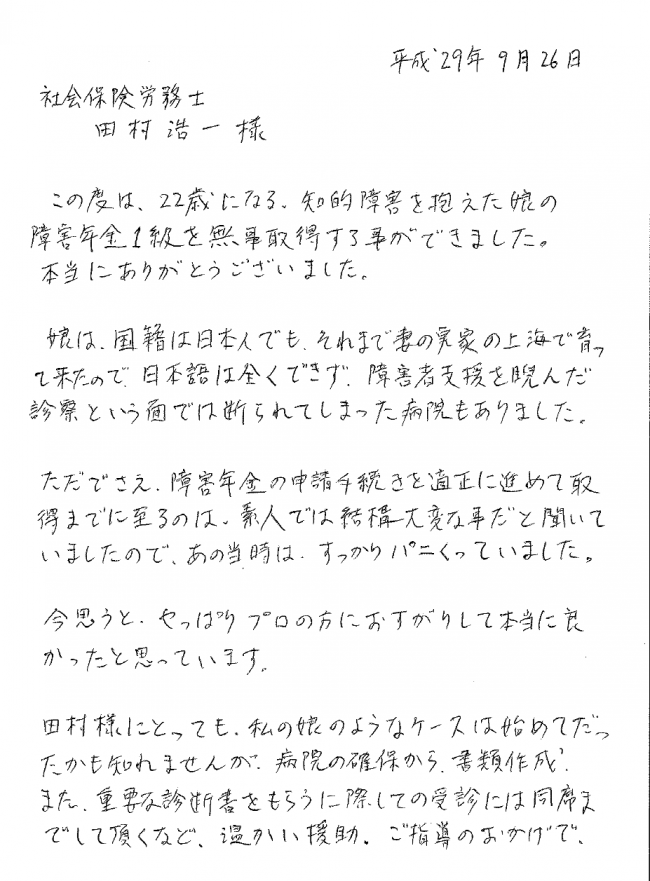 平成29年9月26日
社会保険労務士
田村浩一様
この度は、22歳になる、知的障害を抱えた娘の
障害年金1級を無事取得する事ができました。
本当にありがとうございました。
娘は、国籍は日本人でも、それまで妻の実家の上海で育っ
て来たので、日本語は全くできず、障害者支援を睨んだ
診察という面では断られてしまった病院もありました。
ただでさえ、障害年金の申請手続きを適正に進めて取
得までに至るのは、素人では結構大変な事だと聞いて
いましたので、あの当時は、すっかりパニくっていました。
今思うと、やっぱりプロの方におすがりして本当に良
かったと思っています。
田村様にとっても、私の娘のようなケースは始めてだっ
たかも知れませんが、病院の確保から、書類作成、
また、重要な診断書をもらうに際しての受診には同席ま
でして頂くなど、温かい援助、ご指導のおかげで、